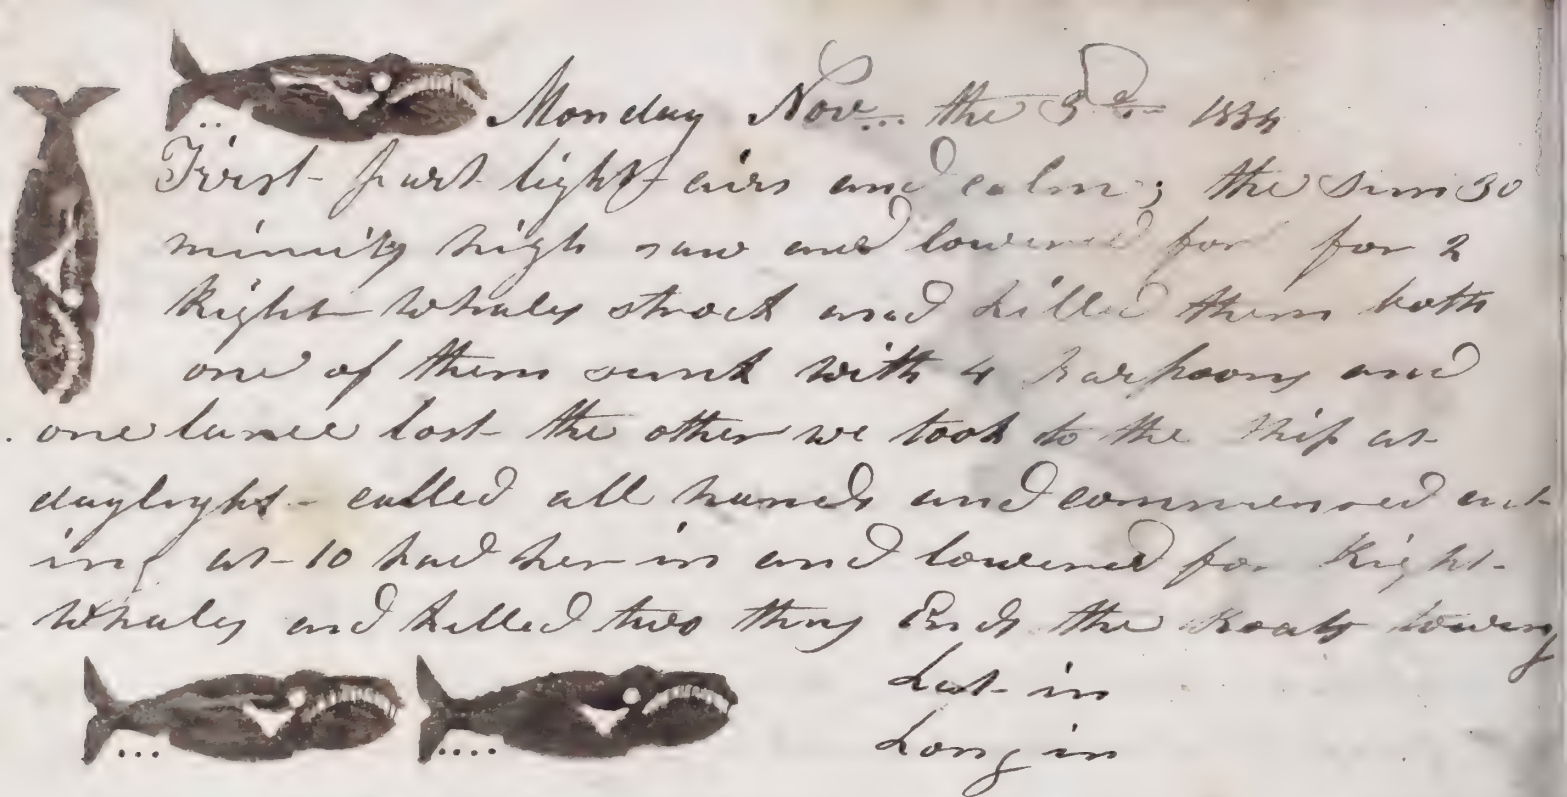 Monday Nov... the 3d 1834
First part light airs and calm; the sun 30
minuts high saw and lowered for for 2
Right whales strock and killed them both
one of them sunk with 4 harpoons and
one lance lost the other we took to the ship at
daylight called all hands and commenced cut-
ing at 10 had her in and lowered for Right
whales and killed two thus Ends the Boats towing
Lat in
Long in